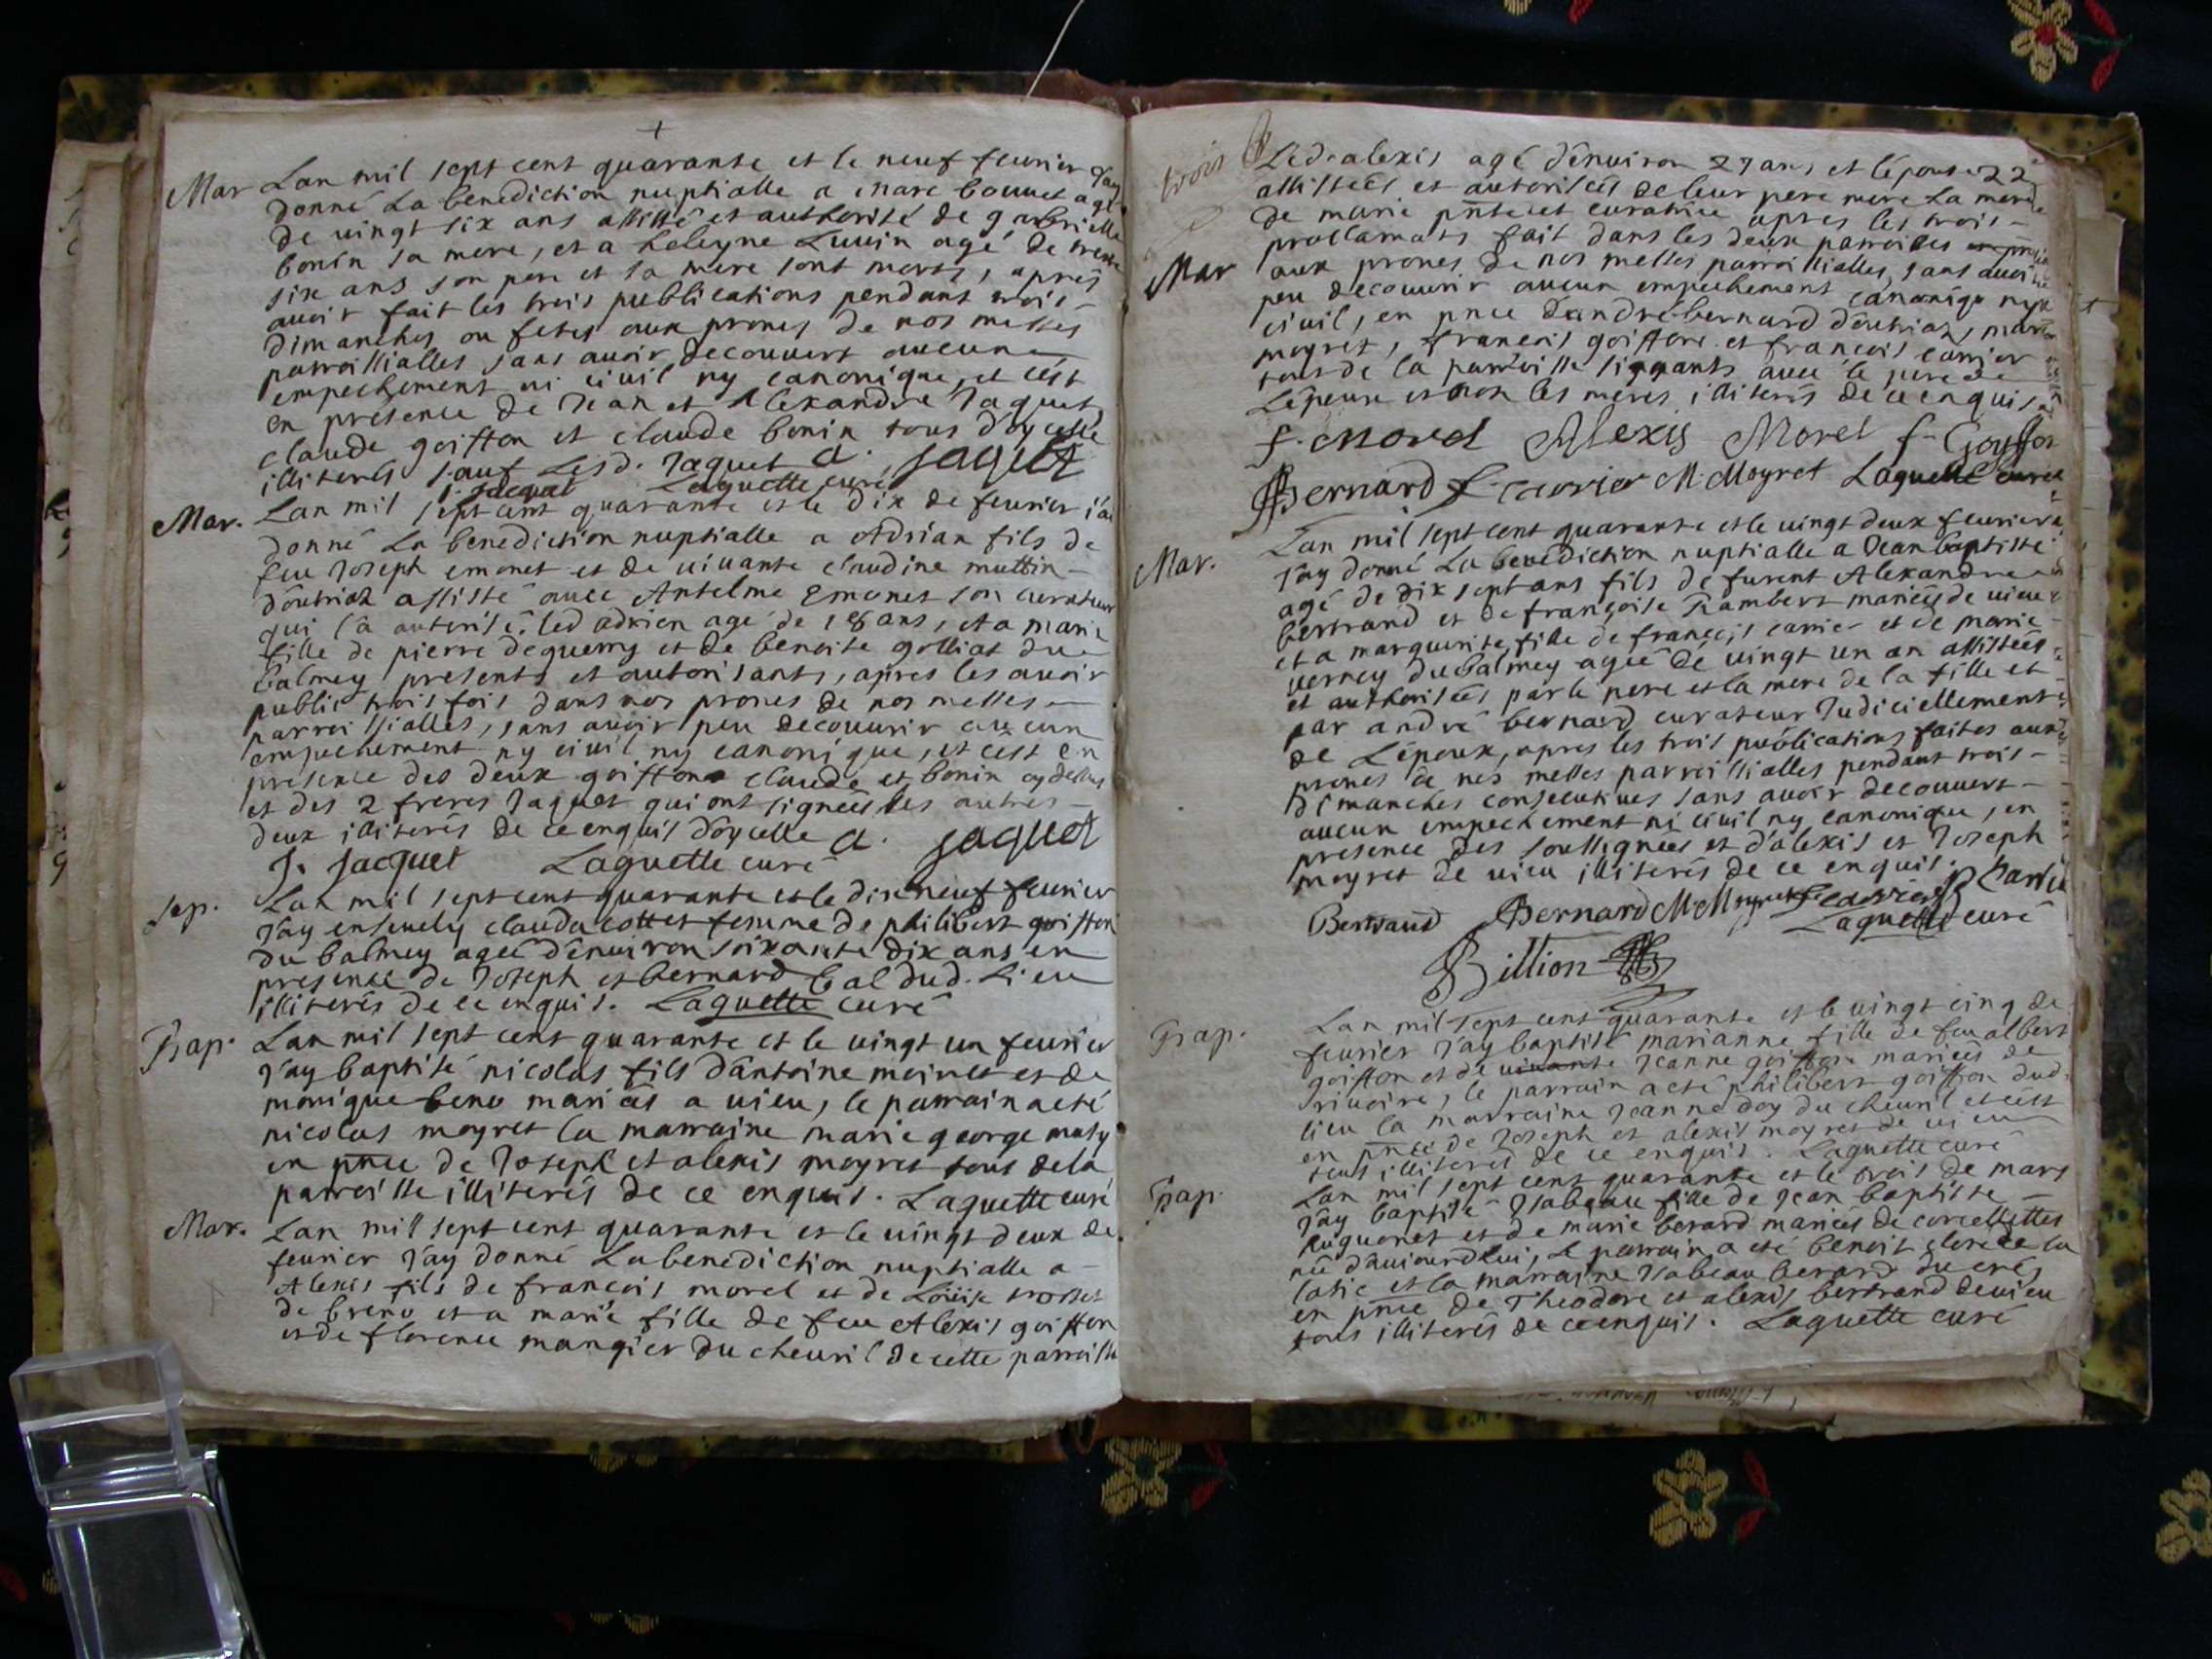 +
Mar Lan mil sept cent quarante et le neuf feurier Jay
donné La benediction nuptialle a marc bonnet agé
de uingt six ans assisté et authorisé de gabrielle
bonin sa mere, et a heleyne Luuin agé de trente
six ans son pere et sa mere sont morts, apres
auoir fait les trois publications pendant trois
dimanches ou fetes aux prones de nos messes
parroissialles sans auoir decouuert aucune
empechement ni ciuil ny canonique, et cest
en presence de Jean et Alexandre Jaquet,
claude goiffon et claude bonin tous d'oycelle
illiterés sauf Lesd. Jaquet a. jaquet
j. jacquet Laguette curé
Mar. Lan mil sept cent quarante et le dix de feurier j'ai
donné La benediction nuptialle a Adrian fils de
feu Joseph emonet et de uiuante claudine muttin
d'outriaz assisté auec Antelme Emonet son curateur
qui l'a autorisé. led adrien agé de 18 ans, et a marie
fille de pierre deguerry et de benoite golliat du
balmey presents et autorisants, apres les auoir
public trois fois dans nos prones de nos messes
parroissialles, sans auoir peu decouurir aucun
empechement ny ciuil ny canonique, et c'est en
presence des deux goiffons claude et bonin cy dessus
et des 2 freres Jaquet qui ont signéés les autres
deux illiterés de ce enquis d'oycelle a. jaquet
J. Jacquet Laguette curé
sep. Lan mil sept cent quarante et le dix neuf feurier
J'ay enseuely clauda cottet femme de philibert goiffon
du balmey agéé d'enuiron soixante dix ans en
presence de Joseph et bernard bal dud. Lieu
illiterés de ce enquis. Laguette curé
Bap. Lan mil sept cent quarante et le uingt un feurier
J'ay baptisé nicolas fils d'antoine moiret et de
monique beno mariéés a uieu, le parrain a eté
nicolas moyret la marraine marie george maty
en pnce de Joseph et alexis moyret tous de la
parroisse illiterés de ce enquis. Laguette curé
Mar. Lan mil sept cent quarante et le uingt deux de
feurier J'ay donné La benediction nuptialle a
Alexis fils de francois morel et de Loüise trosset
de breno et a marie fille de feu Alexis goiffon
et de florence mangier du cheuril de cette parroisse
trois
Led. alexis agé d'enuiron 27 ans et l'épouse 22
assistéés et autoriséés de leur pere mere La mere
de marie pnte et curatrice apres les trois
proclamats fait dans les deux parroisses
Mar aux prones de nos messes parroissialles, sans auoir
peu decouurir aucun empechement canonique ny
ciuil, en pnce d'andré bernard d'outriaz, marc
moyret, francois goiffon et francois carrier
tous de la parroisse signants auec le pere de
Lépoux et non les meres illiterés de ce enquis
f. morel Alexis Morel f. Goyffon
Bernard f. carrier M. Moyret Laguette curé
Mar. Lan mil sept cent quarante et le uingt deux feurier
J'ay donné La benediction nuptialle a Jean baptiste
agé de dix sept ans fils de furent Alexandre
bertrand et de françoise Rambert mariéés de uieu
et a marguerite fille de françois carrier et de marie
uerney du balmey agéé de uingt un an assistéés
et authoriséés par le pere et la mere de la fille et
par andré bernard curateur Judiciellement
de Lépoux, apres les trois publications faites aux
prones de nos messes parroissialles pendant trois
dimanches consecutiues sans auoir decouuert
aucun empechement ni ciuil ny canonique, en
presence des soussignéés et d'alexis et Joseph
moyret de uieu illiterés de ce enquis.
Bertrand Bernard M. Moyret f. carrier
Laguette curé
Billion
Bap. Lan mil sept cent quarante et le uingt cinq de
feurier J'ay baptisé marianne fille de feu albert
goiffon et de uiuante Jeanne goiffon mariéés de
riuoire, le parrain a eté philibert goiffon dud.
lieu la marraine Jeanne doy du cheuril et cest
en pnce de Joseph et alexis moyret de uieu
tous illiterés de ce enquis. Laguette curé
Bap. Lan mil sept cent quarante et le trois de mars
J'ay baptisé Isabeau fille de Jean baptiste
huguenet et de marie berard mariéés de corcellettes
néé d'aujourdhui, Le parrain a eté benoit
et la marraine Isabeau berard du
en pnce de Theodore et alexis bertrand de uieu
tous illiterés de ce enquis. Laguette curé